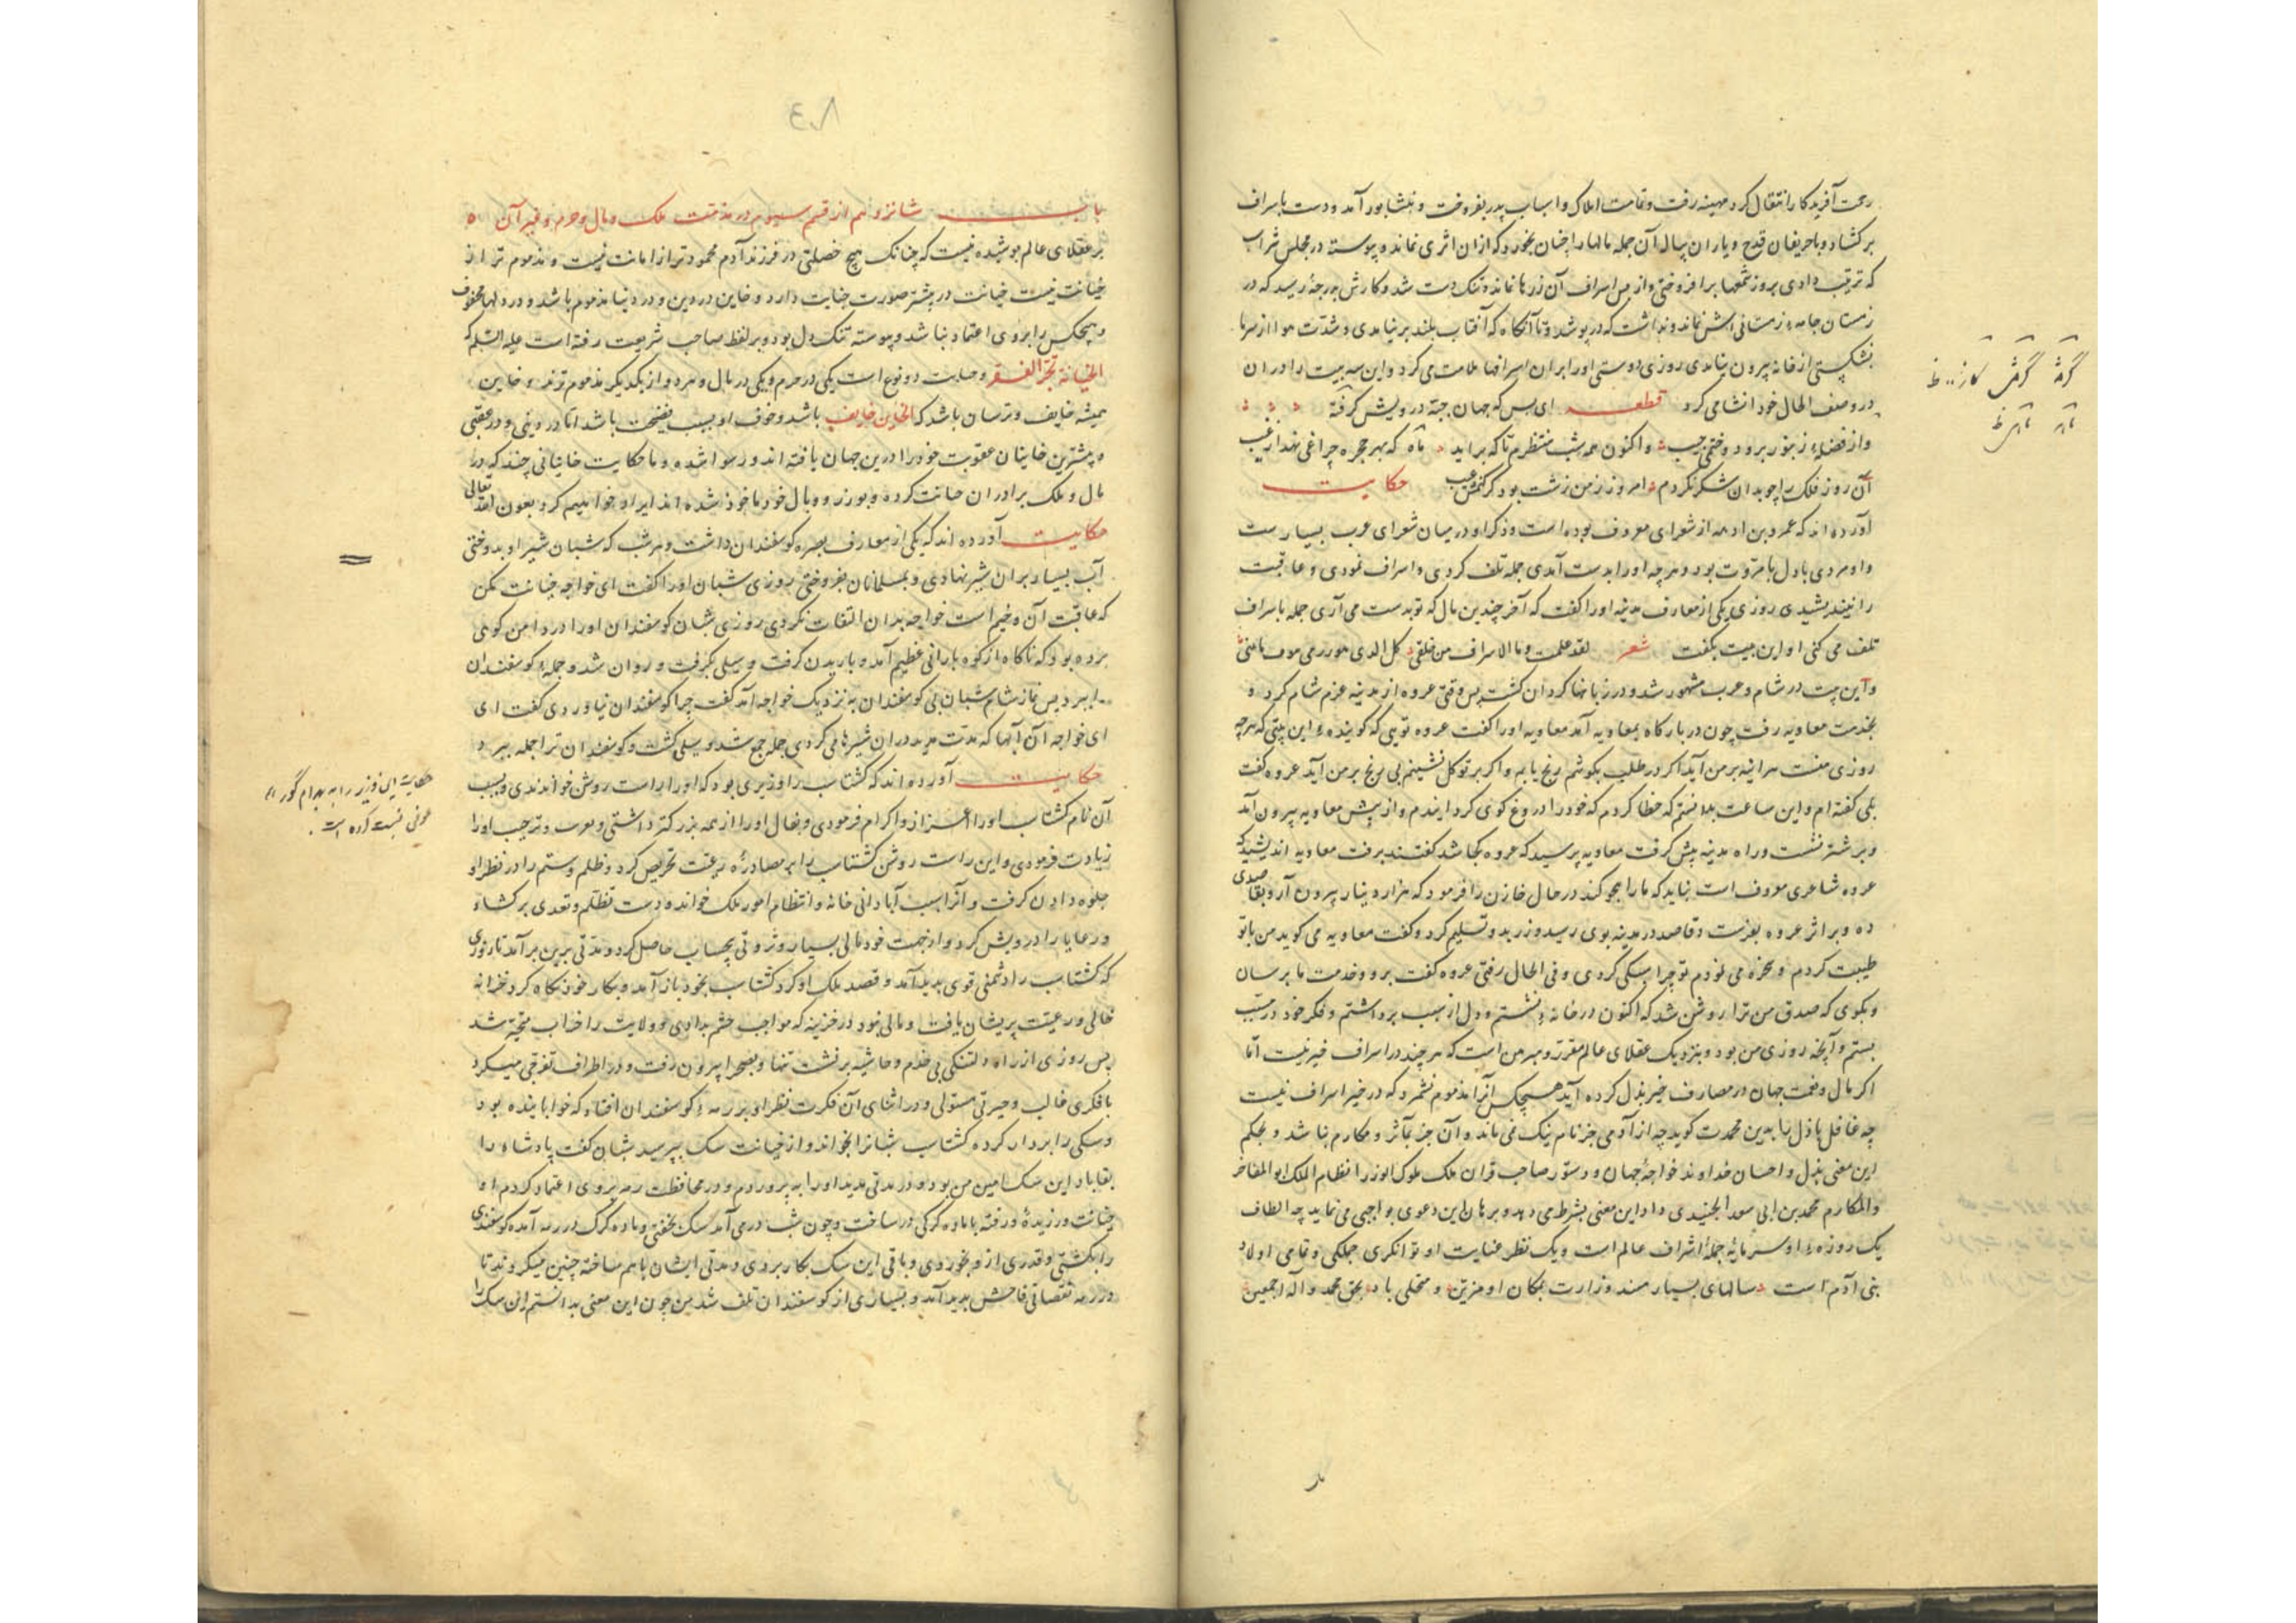 رحمت آفریدکار انتقال کرد مهینه رفت و تمامت املاک و اسباب پدر بفروخت و بنشابور آمد و دست باسراف
برکشاد و با حریفان قدح و یاران پیاله آن جمله مالها را چنان بخورد که ازان اثری نماند و پیوسته در مجلس شراب
که ترتیب دادی بروز شمعها برافروختی و از بس اسراف آن زرها نمانده تنک دست شد و کارش بدرجۀ رسید که در
زمستان جامۀ زمستانی اش نماند و نداشت که درپوشد و تا آنکاه که آفتاب بلند برنیامدی و شدت هوا از سرما
نشکستی از خانه بیرون نیامدی روزی دوستی او را بران اسرافها ملامت می کرد و این سه بیت را دران
در وصف الحال خود انشا می کرد قطعه ای بس که جهان جبۀ درویش کرفته
واز فضلۀ زنبور برو دوختمی جیب واکنون همه شب منتظرم تا که براید ماه که بهر حجره چراغی نهد از غیب
آن روز فلک را چو بدان شکر نکردم امروز زمن زشت بود کر کنمش عیب حکایت
آورده اند که عروه بن اذینه از شعرای معروف بوده است و ذکر او در میان شعرای عرب بسیارست
و او مردی باذل با مروت بود و هرچه او را بدست آمدی جمله تلف کردی و اسراف نمودی و عاقبت
را نیندیشیدی روزی یکی از معارف مدینه او را کفت که آخر چندین مال که تو بدست می آری جمله باسراف
تلف می کنی او این بیت بکفت شعر لقد علمت وما الاسراف من خلقی
و این بیت در شام و عرب مشهور شد و در زبانها کردان کشت پس وقتی عروه از مدینه عزم شام کرد و
بخدمت معاویه رفت چون در بارکاه بمعاویه آمد معاویه او را کفت عروه تویی که کویندۀ این بیتی که هرچه
روزی منست هرآینه بر من آید اکر در طلب بکوشم رنج یابم و اکر بر توکل نشینم بی رنج بر من آید عروه کفت
بلی کفته ام و این ساعت بدانستم که خطا کردم که خود را دروغ کوی کردانیدم و از پیش معاویه بیرون آمد
و بر شتر نشست و راه مدینه پیش کرفت معاویه پرسید که عروه کجا شد کفتند برفت معاویه اندیشید که
عروه شاعری معروف است نباید که ما را هجو کند در حال خازن را فرمود که هزار دینار بیرون آر و بقاصدی
ده و بر اثر عروه بفرست و قاصد در مدینه بوی رسید و زر بدو تسلیم کرد و کفت معاویه می کوید من با تو
طیبت کردم و سخره می نمودم تو چرا سبکی کردی و فی الحال رفتی عروه کفت برو و خدمت ما برسان
و بکوی که صدق من ترا روشن شد که اکنون در خانه بنشستم و دل از سبب برداشتم و فکر خود در مسبب
بستم و آنچه روزی من بود و بنزدیک عقلای عالم مقرر و مبرهن است که هرچند در اسراف خیر نیست اما
اکر مال و نعمت جهان در مصارف خیر بذل کرده آید هیچکس آنرا مذموم نشمرد که در خیر اسراف نیست
چه عاقل باذل را بدین محمدت کوید چه از آدمی جز نام نیک نمی ماند و آن جز بمآثر و مکارم نباشد و بحکم
این معنی بذل و احسان خداوند خواجۀ جهان و دستور صاحب قران ملک ملوک الوزرا نظام الملک ابو المفاخر
والمکارم محمد بن ابی سعد الجنیدی داد این معنی بشرط می دهد و برهان این دعوی بواجبی می نماید چه الطاف
یک روزۀ او سرمایۀ جملۀ اشراف عالم است و یک نظر عنایت او توانکری جملکی و تمامی اولاد
بنی آدم است سالهای بسیار مسند وزارت بمکان او مزین و محلی باد بحق محمد و آله اجمعین
٨٠٣
باب شانزدهم از قسم سیوم در مذمت ملک و مال و حرم و غیر آن
بر عقلای عالم پوشیده نیست که چنانک هیچ خصلتی در فرزند آدم محمودتر از امانت نیست و مذموم تر از
خیانت نیست خیانت در بیشتر صورت جنایت دارد و خاین در دین و در دنیا مذموم باشد و در دلها
و هیچکس را بروی اعتماد نباشد و پیوسته تنک دل بود و بر لفظ صاحب شریعت رفته است علیه السلام که
الخیانة تجر الفقر و خیانت دو نوع است یکی در حرم و یکی در مال و هر دو از یکدیکر مذموم ترند و خاین
همیشه خایف و ترسان باشد که الخاین خایف باشد و خوف او بسبب فضیحت باشد اما در دینی و در عقبی
و بیشترین خاینان عقوبت خود را درین جهان یافته اند و رسوا شده و ما حکایت خاینانی چند که در
مال و ملک برادران خیانت کرده و بوزر و وبال خود ماخوذ شده اند ایراد خواهیم کرد بعون الله تعالی
حکایت آورده اند که یکی از معارف بصره کوسفندان داشت و هر شب که شبان شیر او بدوختی
آب بسیار بران شیر نهادی و بمسلمانان بفروختی روزی شبان او را کفت ای خواجه خیانت مکن
که عاقبت آن وخیم است خواجه بدان التفات نکردی روزی شبان کوسفندان او را در دامن کوهی
برده بود که ناکاه از کوه بارانی عظیم آمد و باریدن کرفت و سیلی بکرفت و روان شد و جملۀ کوسفندان
را ببرد پس نماز شام شبان بی کوسفندان به نزدیک خواجه آمد کفت چرا کوسفندان نیاوردی کفت ای
ای خواجه آن آبها که مدت مدید دران شیرها می کردی جمله جمع شد و سیلی کشت و کوسفندان ترا جمله ببرد
حکایت آورده اند که کشتاسب را وزیری بود که او را راست روشن خواندندی و بسبب
آن نام کشتاسب او را اعزاز و اکرام فرمودی و بفال او را از همه بزرکتر داشتی و تقریب و ترحیب او را
زیادت فرمودی و این راست روشن کشتاسب را بر مصادرۀ رعیت تحریض کرد و ظلم و ستم را در نظر او
جلوه دادن کرفت و آنرا سبب آبادانی خانه و انتظام امور ملک خوانده دست تظلم و تعدی برکشاد
و رعایا را درویش کرد و از جهت خود مالی بسیار و ثروتی بحساب حاصل کرد و مدتی برین برآمد تا روزی
که کشتاسب را دشمنی قوی پدید آمد و قصد ملک او کرد کشتاسب بخود باز آمد و بکار خود نکاه کرد خزانه
خالی و رعیت پریشان یافت و مالی نبود در خزینه که مواجب حشم بدادی و ولایت را خراب متحیر شد
پس روزی از راه دلتنکی بی خدم و حاشیه برنشست تنها و بصحرا بیرون رفت و در اطراف تفرجی میکرد
با فکری غالب و حیرتی مستولی و در اثنای آن فکرت نظر او بر رمۀ کوسفندان افتاد که خوابانیده بود
و سکی را بردار کرده کشتاسب شبانرا بخواند و از خیانت سک بپرسید شبان کفت پادشاه را
بقا باد این سک امین من بود و در مدتی مدید او را بپروردم و در محافظت رمه بروی اعتماد کردم او
خیانت ورزیده و رفته با ماده کرکی درساخت و چون شب درمی آمد سک بخفتی و ماده کرک در رمه آمده کوسفندی
را بکشتی و قدری ازو بخوردی و باقی این سک بکار بردی و مدتی ایشان با هم ساخته چنین میکردند تا
در رمه نقصانی فاحش پدید آمد و بسیاری از کوسفندان تلف شد من چون این معنی بدانستم این سک را
حکایت این وزیر را به بهرام گور
عوفی نسبت کرده است.